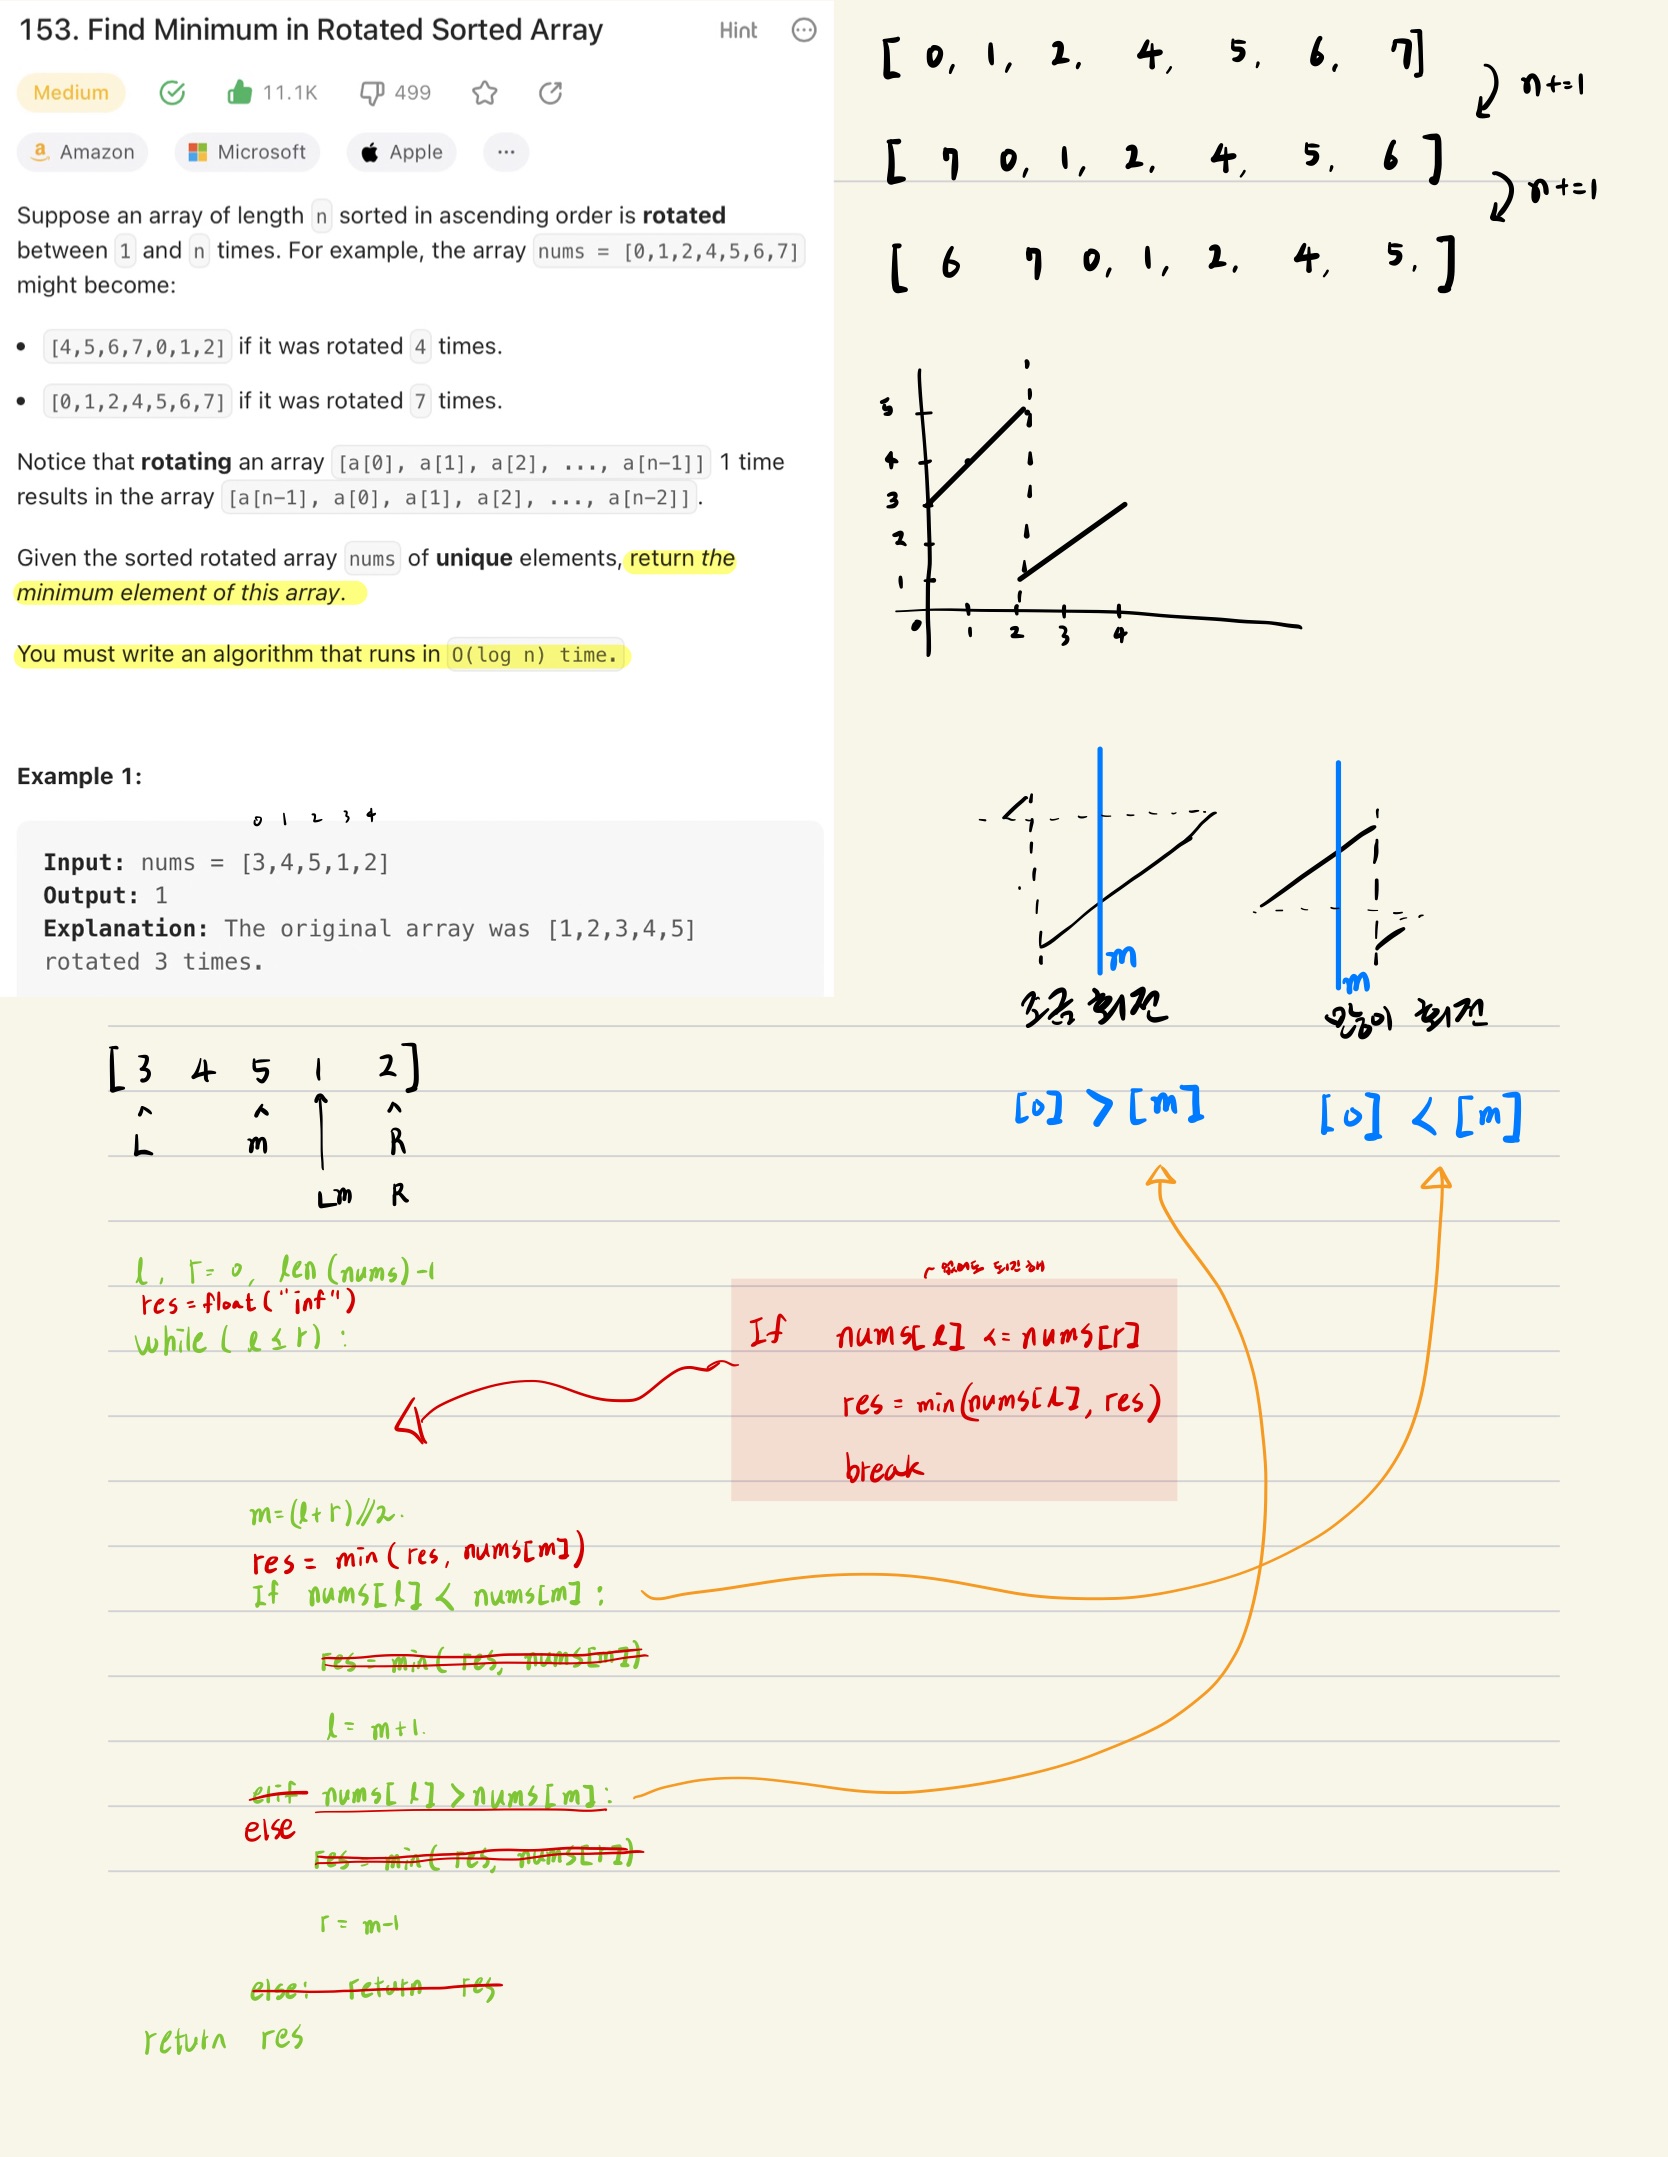 153. Find Minimum in Rotated Sorted Array
Hint
Medium
11.1K
499
Amazon
Microsoft
Apple
Suppose an array of length n sorted in ascending order is rotated
between 1 and n times. For example, the array nums = [0,1,2,4,5,6,7]
might become:
• [4,5,6,7,0,1,2] if it was rotated 4 times.
• [0,1,2,4,5,6,7] if it was rotated 7 times.
Notice that rotating an array [a[0], a[1], a[2], ..., a[n-1]] 1 time
results in the array [a[n-1], a[0], a[1], a[2], ..., a[n-2]].
Given the sorted rotated array nums of unique elements, return the
minimum element of this array.
You must write an algorithm that runs in O(log n) time.
Example 1:
0 1 2 3 4
Input: nums = [3,4,5,1,2]
Output: 1
Explanation: The original array was [1,2,3,4,5]
rotated 3 times.
[ 0, 1, 2, 4, 5, 6, 7]
n+=1
[ 7 0, 1, 2, 4, 5, 6 ]
n+=1
[ 6 7 0, 1, 2, 4, 5, ]
5
4
3
2
1
0 1 2 3 4
m
m
조금 회전
많이 회전
[0] > [m]
[0] < [m]
[ 3 4 5 1 2 ]
L m R
L m R
l, r = 0, len(nums)-1
res = float("inf")
while ( l ≤ r ) :
없어도 되긴 해
If nums[l] <= nums[r]
res = min(nums[l], res)
break
m = (l+r)//2.
res = min ( res, nums[m])
If nums[l] < nums[m] :
res = min( res, nums[m])
l = m+1.
elif nums[l] > nums[m] :
else
res = min( res, nums[r])
r = m-1
else: return res
return res